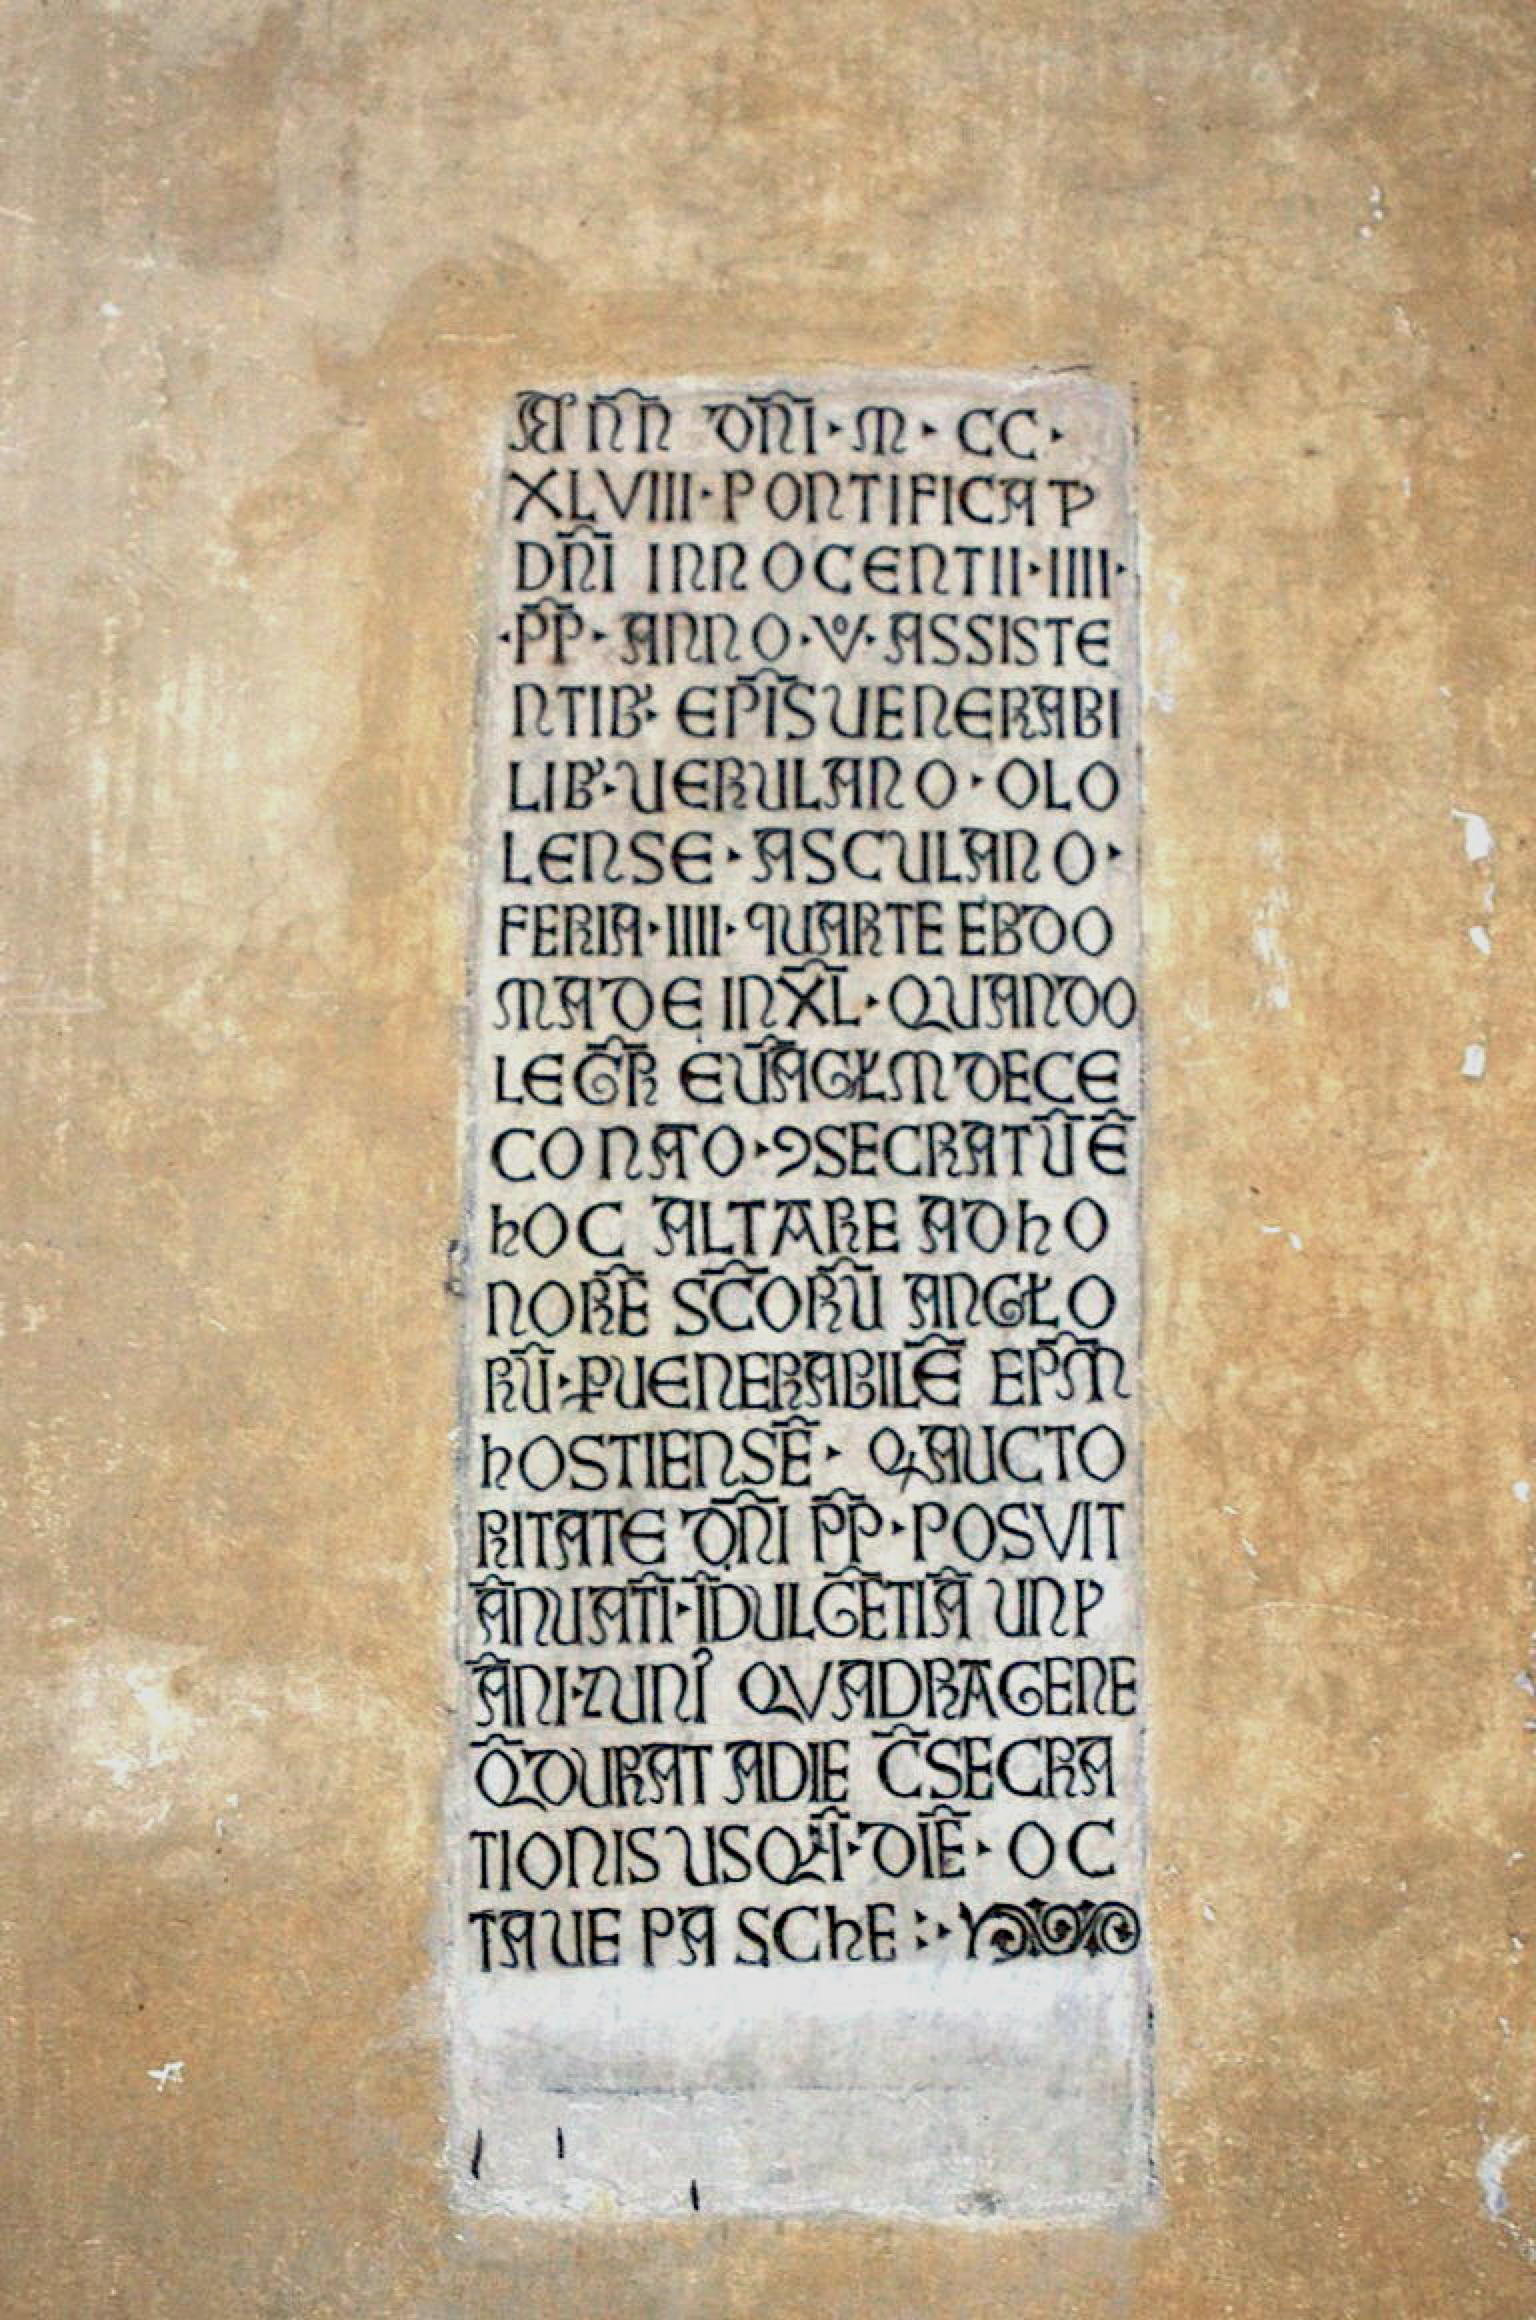 AN̄N̄ DN̄I · M · CC ·
XLVIII · PONTIFICAT
DN̄I INNOCENTII · IIII ·
· P̄P̄ · ANNO · V° · ASSISTE
NTIB' · EP̄IS VENERABI
LIB' · VERULANO · OLO
LENSE · ASCULANO ·
FERIA · IIII · QUARTE EBDO
MADE IN X̄L · QUANDO
LEḠR̄ EŪĀGŁM DE CE
CO NATO · ꝯSECRATŪ Ē
hOC ALTARE AD hO
NORĒ SC̄ORŪ ANGŁO
RŪ · P̱ VENERABILĒ EP̄M̄
hOSTIENSĒ · Q AUCTO
RITATE DN̄I P̄P̄ · POSVIT
ĀNUATĪ · ĪDULGĒTIĀ UNI
ĀNI · ⁊ UNI QVADRAGENE
Q̄ DURAT A DIE C̄SECRA
TIONIS USQ A̅D DIĒ · OC
TAVE PASChE :·